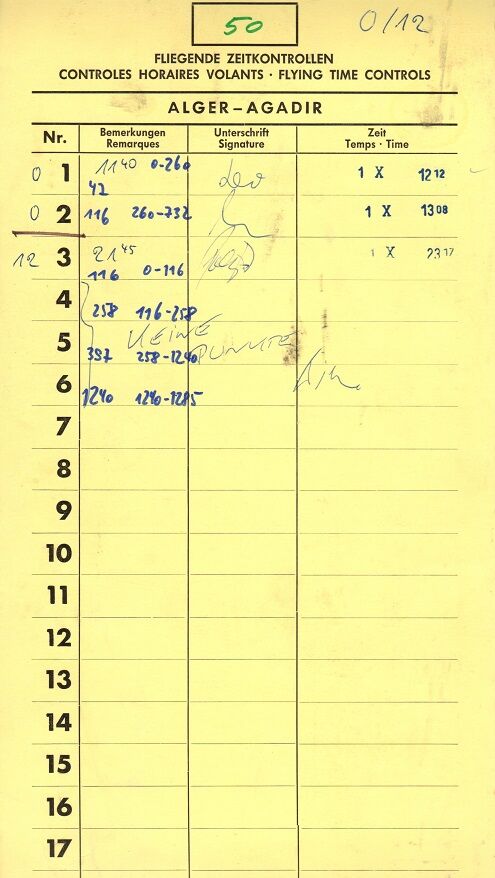 50
0/12
FLIEGENDE ZEITKONTROLLEN
CONTROLES HORAIRES VOLANTS · FLYING TIME CONTROLS
ALGER–AGADIR
Nr. Bemerkungen Remarques Unterschrift Signature Zeit Temps · Time
0 1 11 40 0-260 1 X 12 12
42
0 2 116 260-732 1 X 13 08
12 3 21 45 1 X 23 17
116 0-116
4 258 116-258
KEINE PUNKTE
5 397 258-1240
6 1240 1240-1285
7
8
9
10
11
12
13
14
15
16
17